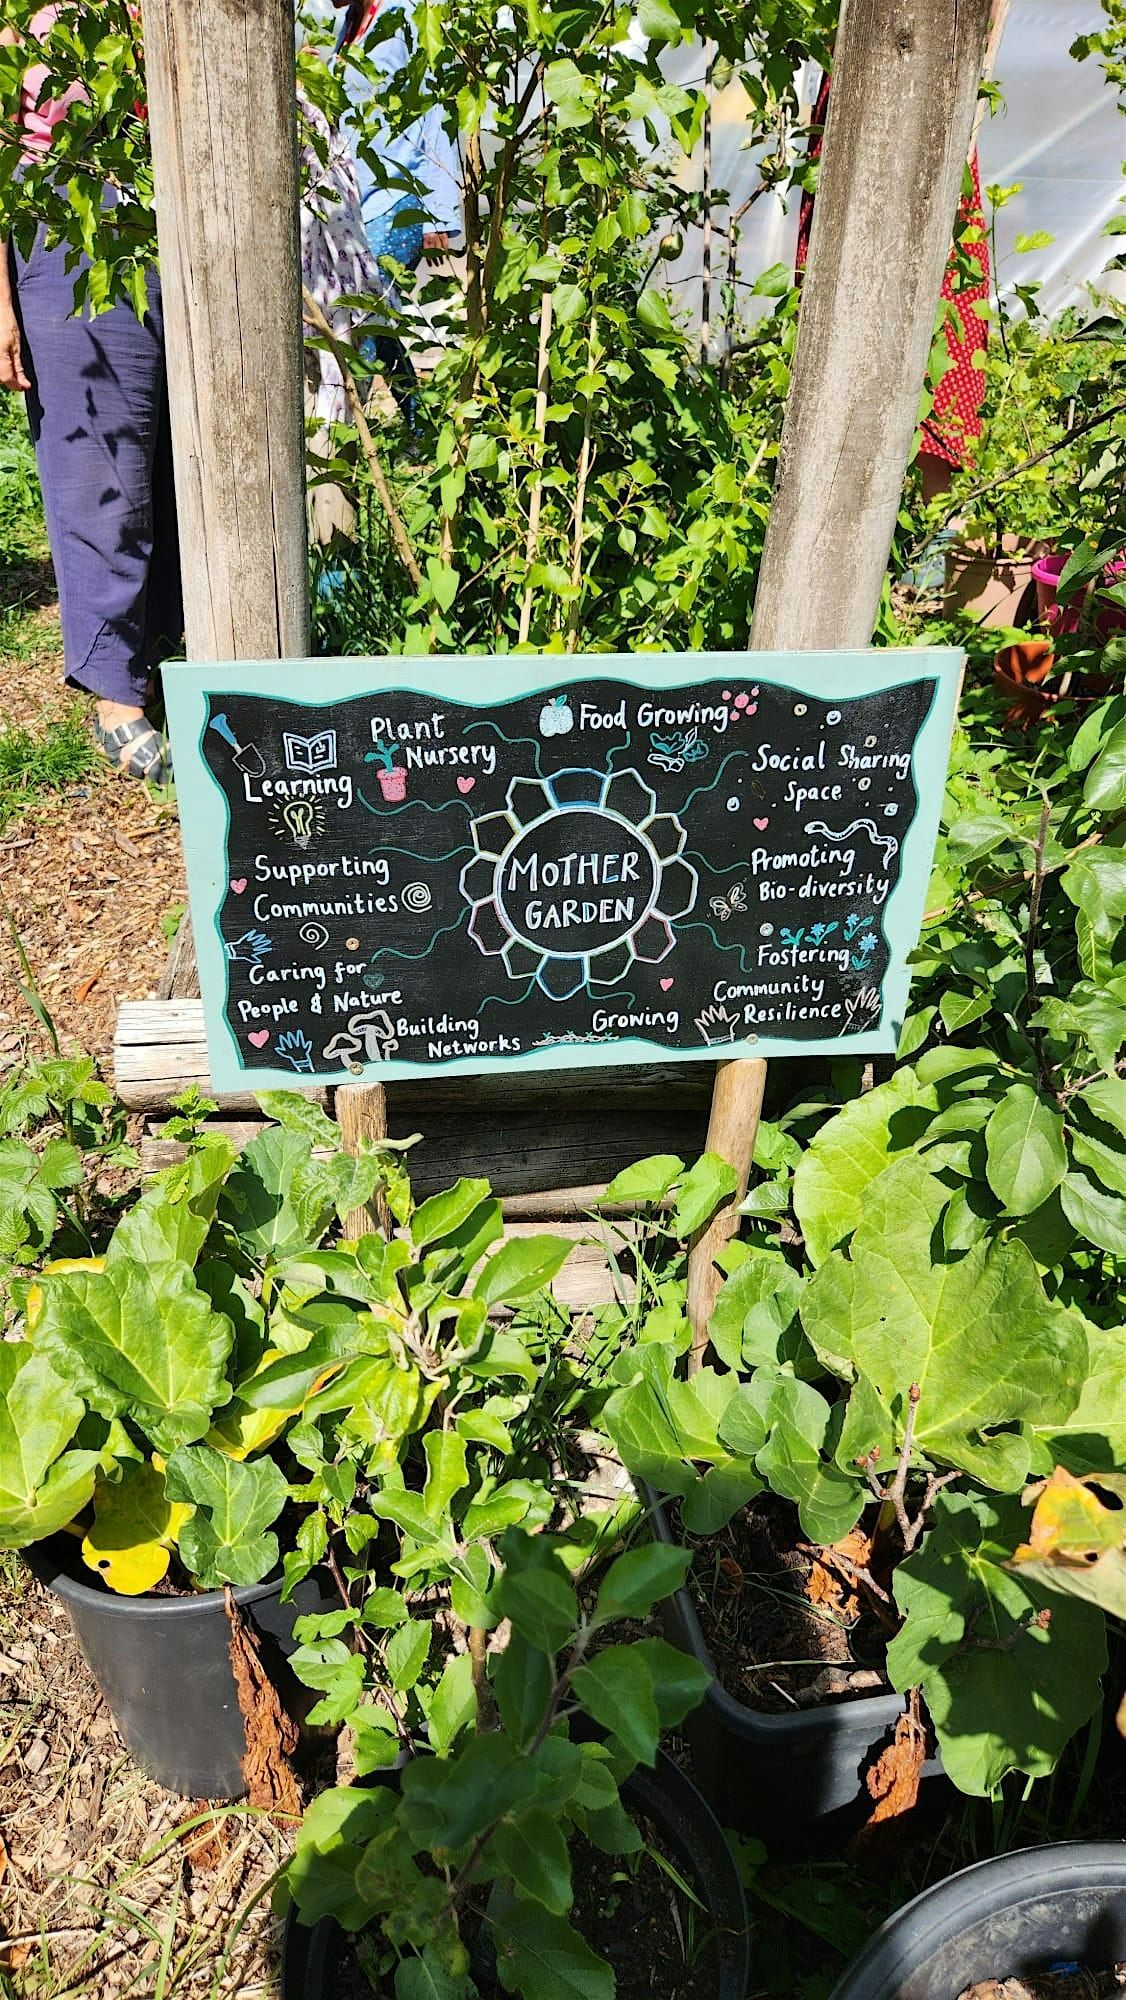 MOTHER
GARDEN
Learning
Plant
Nursery
Food Growing
Social Sharing
Space
Promoting
Bio-diversity
Fostering
Community
Resilience
Growing
Building
Networks
Caring for
People & Nature
Supporting
Communities